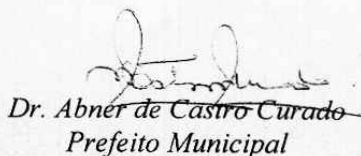 Dr. Abner de Castro Curado
Prefeito Municipal